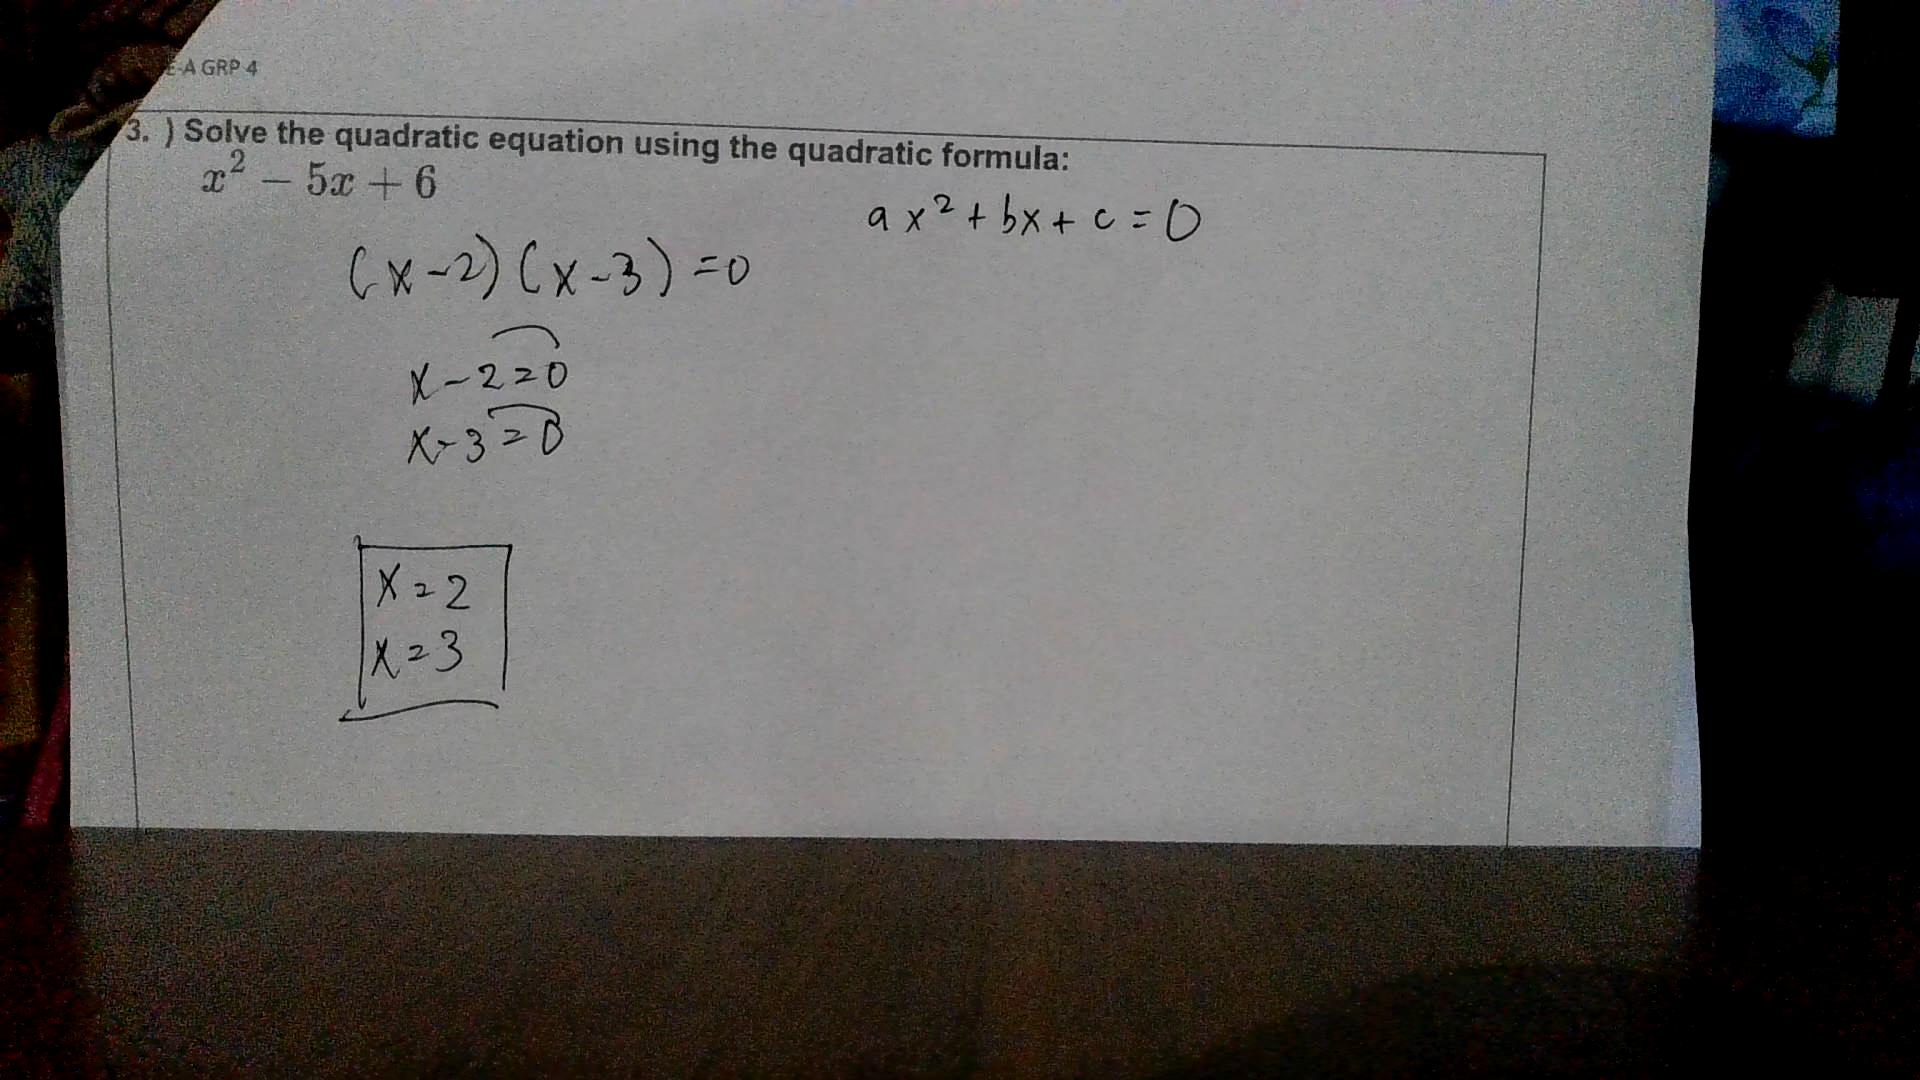 E-A GRP 4
3. ) Solve the quadratic equation using the quadratic formula:
x² − 5x + 6
ax² + bx + c = 0
(x-2)(x-3) = 0
x-2=0
x-3=0
x=2
x=3